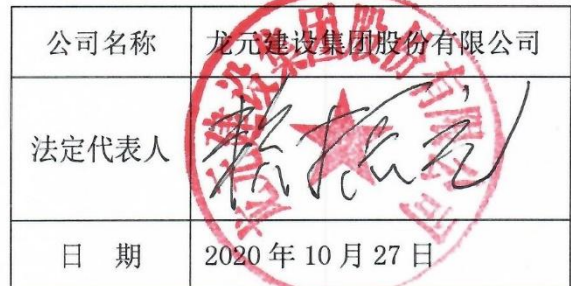 公司名称 龙元建设集团股份有限公司
法定代表人 赖振元
日 期 2020年10月27日
龙元建设集团股份有限公司